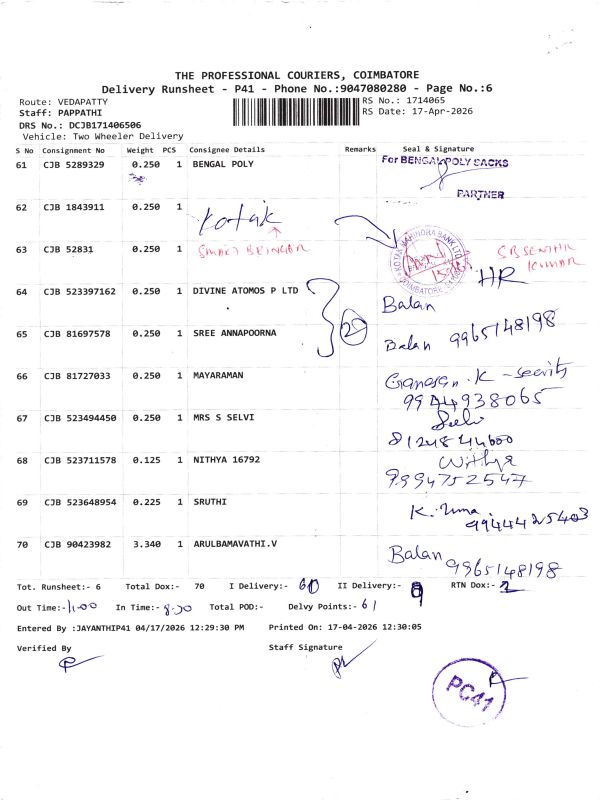 THE PROFESSIONAL COURIERS, COIMBATORE
Delivery Runsheet - P41 - Phone No.:9047080280 - Page No.:6
Route: VEDAPATTY
RS No.: 1714065
Staff: PAPPATHI
RS Date: 17-Apr-2026
DRS No.: DCJB171406506
Vehicle: Two Wheeler Delivery
S No Consignment No Weight PCS Consignee Details Remarks Seal & Signature
61 CJB 5289329 0.250 1 BENGAL POLY For BENGAL POLY SACKS
PARTNER
62 CJB 1843911 0.250 1 Kotak
63 CJB 52831 0.250 1 KOTAK MAHINDRA BANK LTD
COIMBATORE
HR
64 CJB 523397162 0.250 1 DIVINE ATOMOS P LTD Balan
65 CJB 81697578 0.250 1 SREE ANNAPOORNA Balan 9965148198
66 CJB 81727033 0.250 1 MAYARAMAN Ganesan.K - Security
9944938065
67 CJB 523494450 0.250 1 MRS S SELVI Selvi
8124844600
68 CJB 523711578 0.125 1 NITHYA 16792 Nithya
9994752547
69 CJB 523648954 0.225 1 SRUTHI K. Uma
9944425403
70 CJB 90423982 3.340 1 ARULBAMAVATHI.V Balan
9965148198
Tot. Runsheet:- 6 Total Dox:- 70 I Delivery:- 60 II Delivery:- 8 RTN Dox:- 2
Out Time:- 11.00 In Time:- 8.30 Total POD:- Delvy Points:- 61
Entered By :JAYANTHIP41 04/17/2026 12:29:30 PM Printed On: 17-04-2026 12:30:05
Verified By Staff Signature
PC41